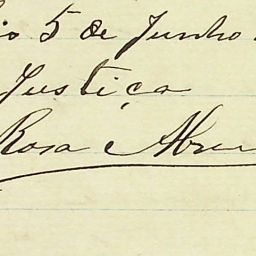 io 5 de Junho
Justiça
Rosa e Abreu